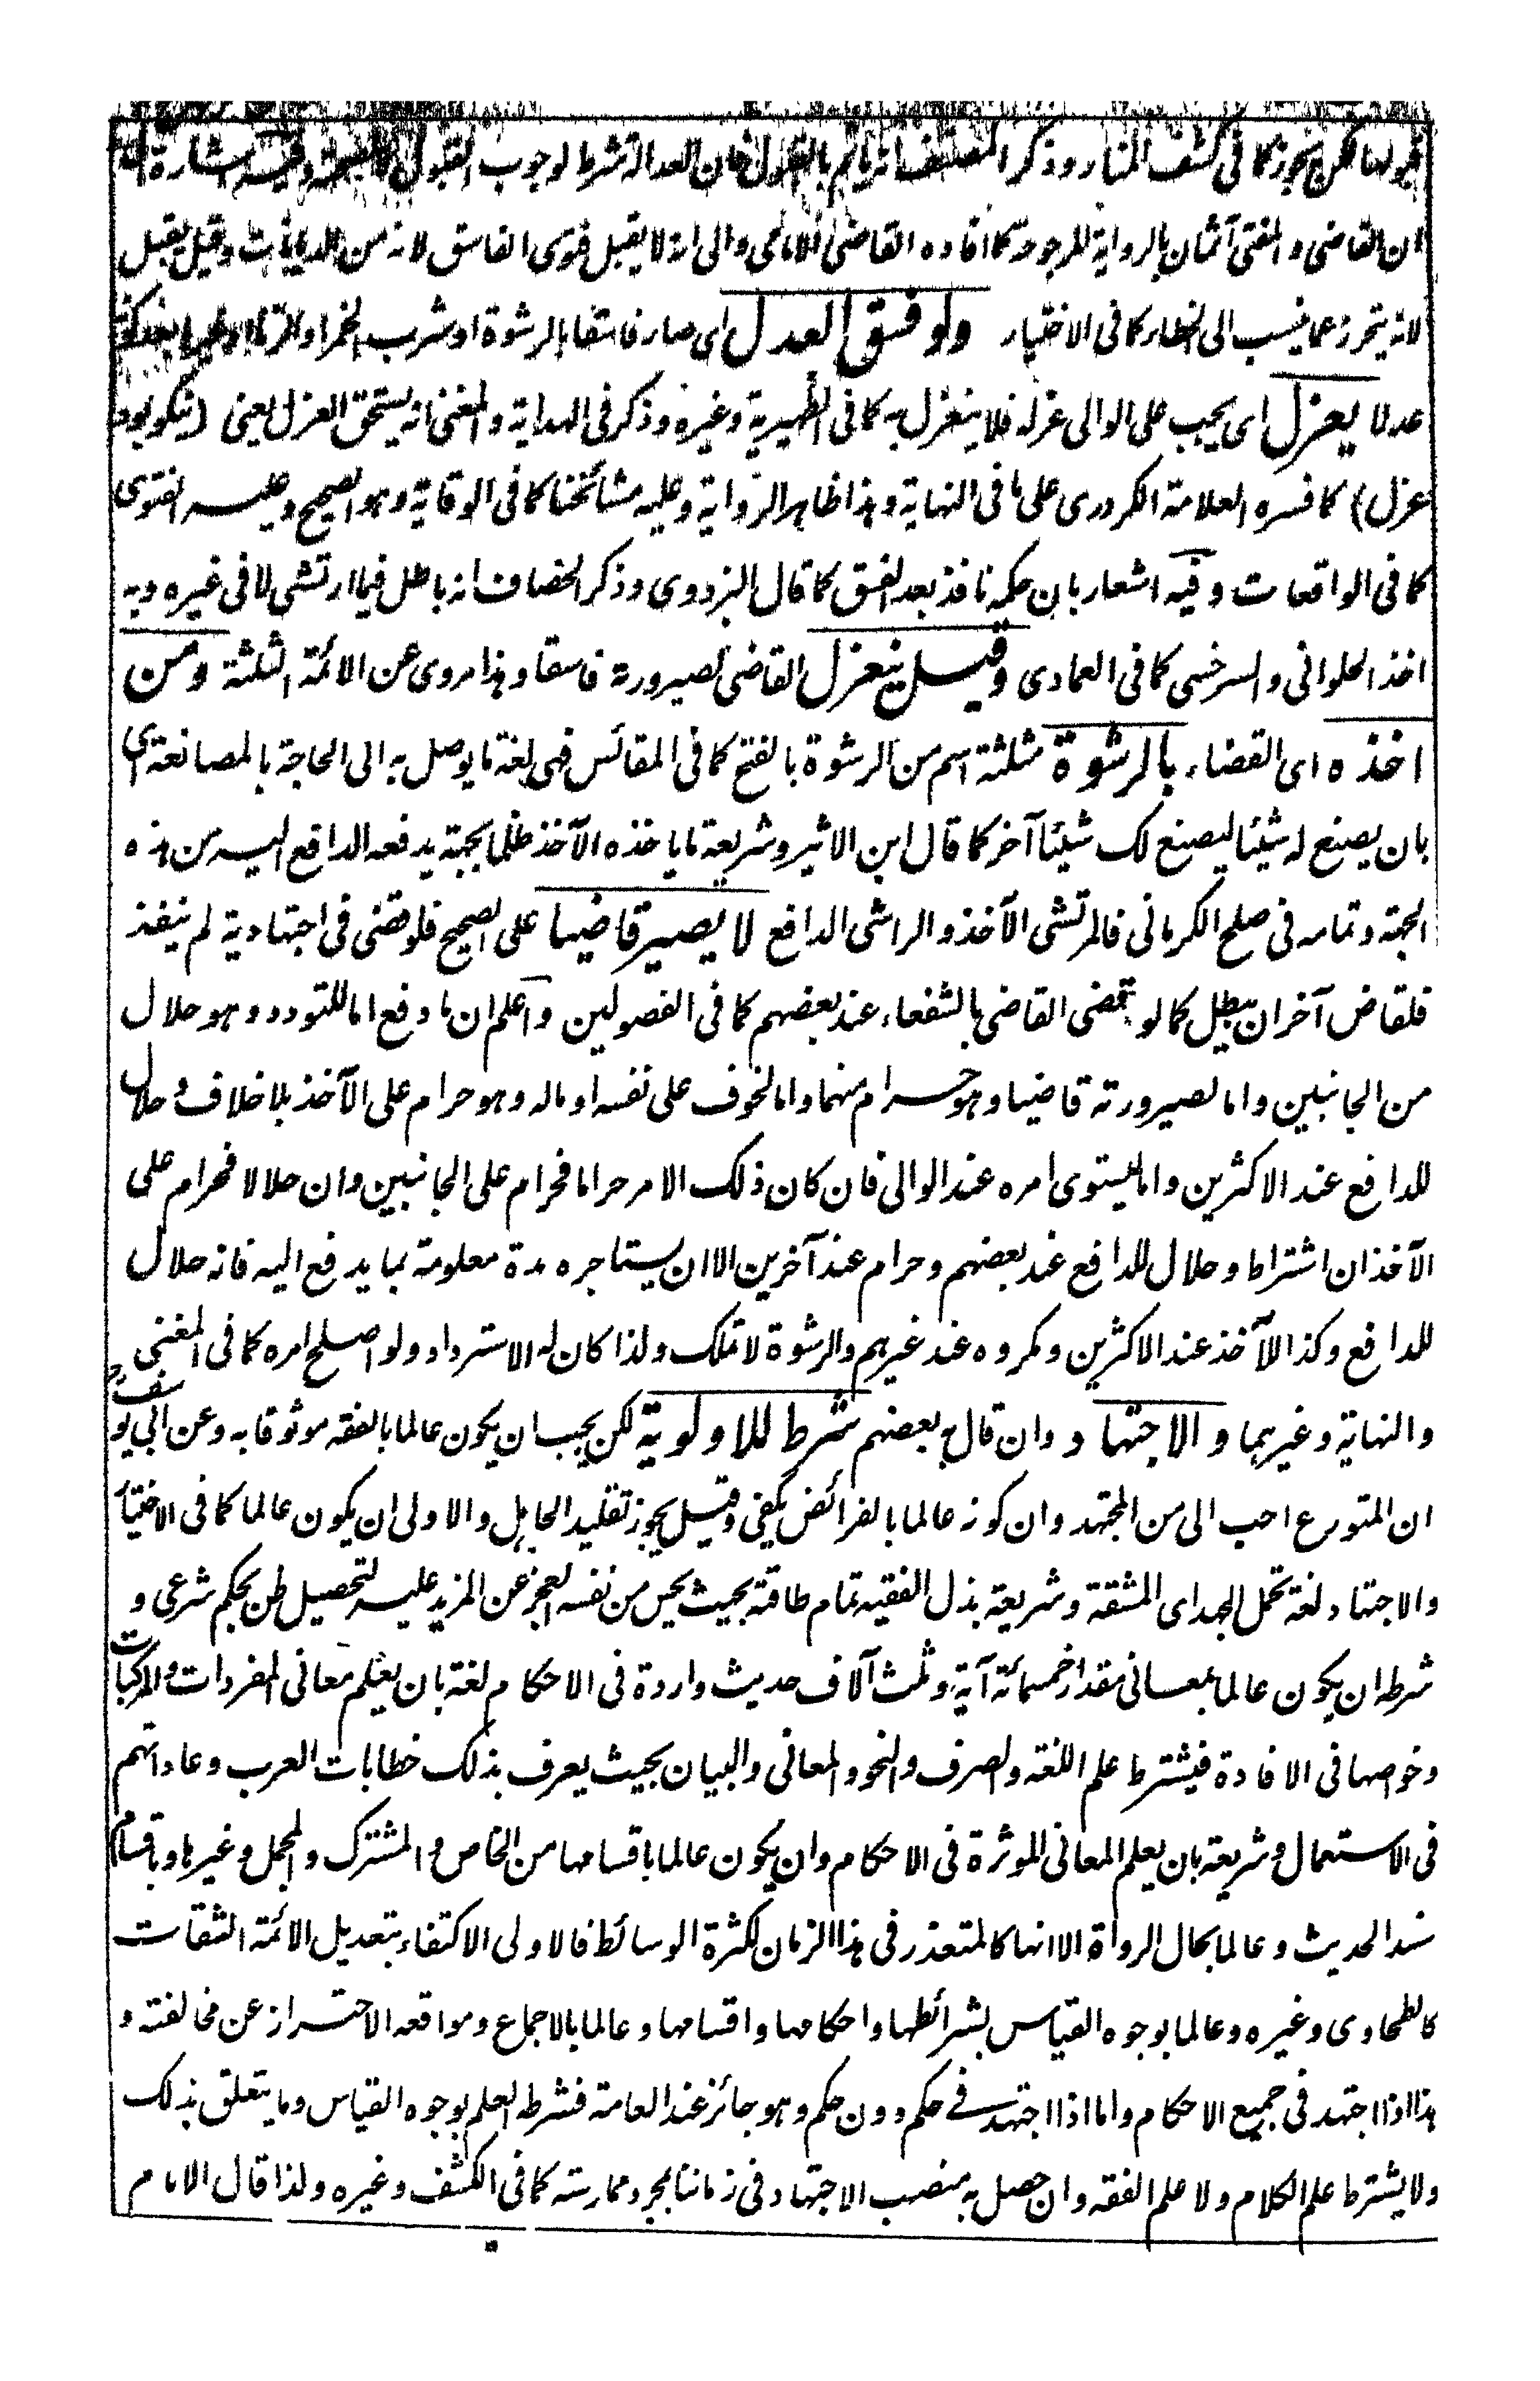 لكن يجوز كما فى كشف المنار وذكر المصنف انه ياثم بالقبول فان العدالة شرط لوجوب القبول وفيه اشارة الى
ان القاضى والمفتى آثمان بالرواية المرجوحة كما افاده القاضى الامامى والى انه لا يقبل فتوى الفاسق لانه من الديانات وقيل يقبل
لانه يتحرز عما ينسب الى الخطاء كما فى الاختيار ولو فسق العدل اى صار فاسقا بالرشوة او شرب الخمر او الزنا
عدلا يعزل اى يجب على الوالى عزله فلا ينعزل به كما فى الظهيرية وغيره وذكر فى الهداية والمغنى انه يستحق العزل يعنى (نيكو بود
عزل) كما فسره العلامة الكردرى على ما فى النهاية وهذا ظاهر الرواية وعليه مشائخنا كما فى الوقاية وهو الصحيح وعليه الفتوى
كما فى الواقعات وفيه اشعار بان حكمه نافذ بعد الفسق كما قال البزدوى وذكر الخصاف انه باطل فيما ارتشى لا فى غيره وبه
اخذ الحلوانى والسرخسى كما فى العمادى وقيل ينعزل القاضى لصيرورته فاسقا وهذا مروى عن الائمة الثلثة ومن
اخذه اى القضاء بالرشوة مثلثة اسم من الرشوة بالفتح كما فى المقائس فهى لغة ما يوصل به الى الحاجة بالمصانعة اى
بان يصنع له شيئا ليصنع لك شيئا آخر كما قال ابن الاثير وشريعة ما ياخذه الآخذ ظلما بجهة يدفعه الدافع اليه من هذه
الجهة وتمامه فى صلح الكرمانى فالمرتشى الآخذ والراشى الدافع لا يصير قاضيا على الصحيح فلو قضى فى اجتهادية لم ينفذ
فلقاض آخر ان يبطل كما لو تقضى القاضى بالشفعاء عند بعضهم كما فى الفصولين واعلم ان ما دفع اما للتودد وهو حلال
من الجانبين واما لصيرورته قاضيا وهو حرام منهما واما لخوف على نفسه او ماله وهو حرام على الآخذ بلا خلاف وحلال
للدافع عند الاكثرين واما ليستوى امره عند الوالى فان كان ذلك الامر حراما فحرام على الجانبين وان حلالا فحرام على
الآخذ ان اشتراطا وحلال للدافع عند بعضهم وحرام عند آخرين الا ان يستاجره مدة معلومة بما يدفع اليه فانه حلال
للدافع وكذا للآخذ عند الاكثرين ومكروه عند غيرهم والرشوة لا تملك ولذا كان له الاسترداد ولو اصلح امره كما فى المغنى
والنهاية وغيرهما والاجتهاد وان قال به بعضهم شرط للاولوية لكن يجب ان يكون عالما بالفقه موثوقا به وعن ابى يوسف
ان المتورع احب الى من المجتهد وان كونه عالما بالفرائض يكفى وقيل يجوز تقليد الجاهل والاولى ان يكون عالما كما فى الاختيار
والاجتهاد لغة تحمل الجهد اى المشقة وشريعة بذل الفقيه تمام طاقته بحيث يحس من نفسه العجز عن المزيد عليه لتحصيل ظن بحكم شرعى و
شرطه ان يكون عالما بمعانى مقدار خمسمائة آية وثلث آلاف حديث واردة فى الاحكام لغة بان يعلم معانى المفردات والمركبات
وخواصها فى الافادة فيشترط علم اللغة والصرف والنحو والمعانى والبيان بحيث يعرف بذلك خطابات العرب وعاداتهم
فى الاستعمال وشريعة بان يعلم المعانى المؤثرة فى الاحكام وان يكون عالما باقسامها من الخاص والمشترك والمجمل وغيرها وباقسام
سند الحديث وعالما بحال الرواة الا انها كالمتعذر فى هذا الزمان لكثرة الوسائط فالاولى الاكتفاء بتعديل الائمة الثقات
كالطحاوى وغيره وعالما بوجوه القياس بشرائطها واحكامها واقسامها وعالما بالاجماع ومواقعه الاحتراز عن مخالفته و
هذا اذا اجتهد فى جميع الاحكام واما اذا اجتهد فے حكم دون حكم وهو جائز عند العامة فشرطه العلم بوجوه القياس وما يتعلق بذلك
ولا يشترط علم الكلام ولا علم الفقه وان حصل به منصب الاجتهاد فى زماننا بمجرد ممارسته كما فى الكشف وغيره ولذا قال الامام